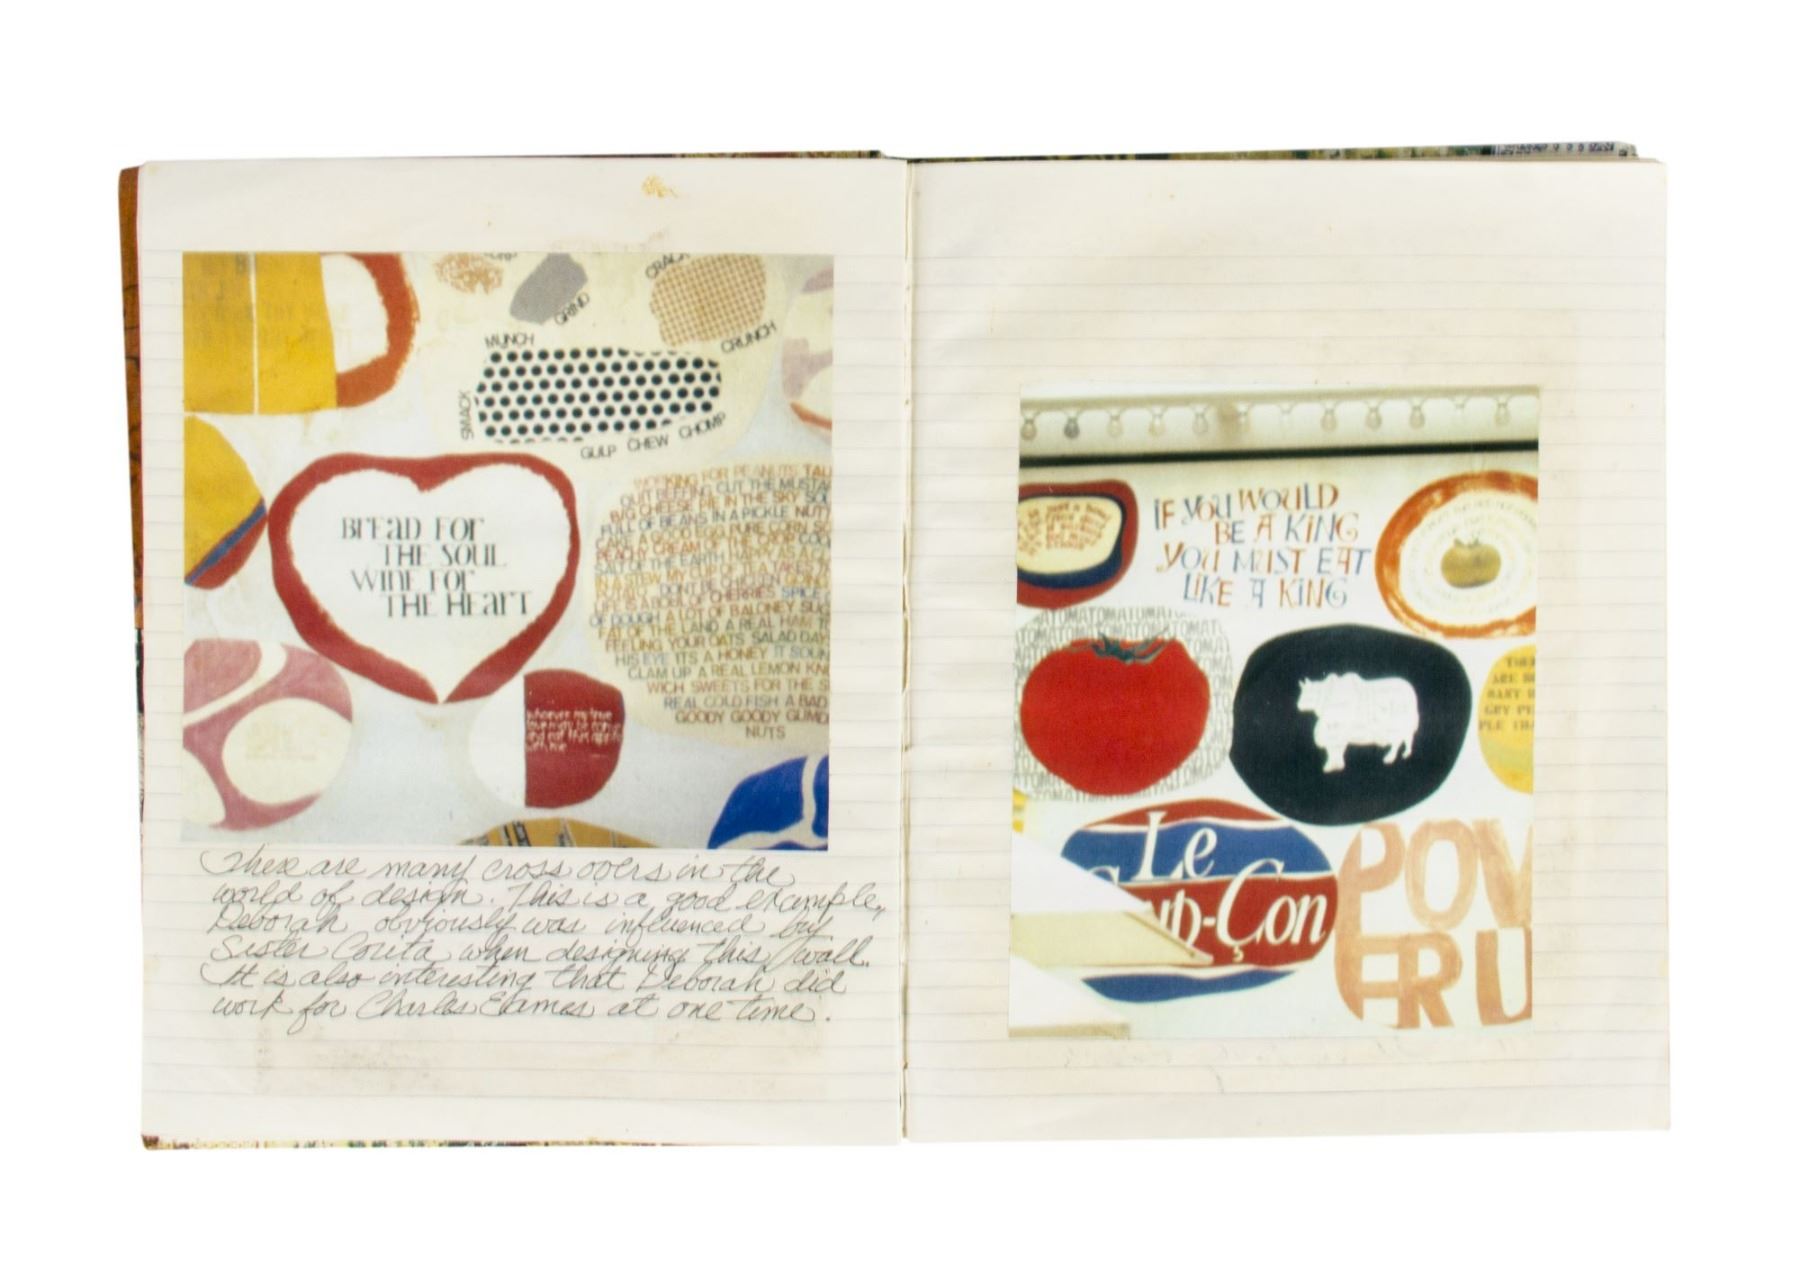 CRACK
GRIND
CRUNCH
MUNCH
SMACK
GULP CHEW CHOMP
BREAD FOR
THE SOUL
WINE FOR
THE HEART
WORKING FOR PEANUTS TAL
QUIT BEEFING CUT THE MUSTA
BIG CHEESE PIE IN THE SKY SO
FULL OF BEANS IN A PICKLE NUT
A GOOD EGG PURE CORN
PEACHY CREAM OF THE CROP
SALT OF THE EARTH HAPPY AS A
IN A STEW MY CUP OF TEA TAKES
DON'T BE CHICKEN GOING
LIFE IS A BOWL OF CHERRIES SPICE
OF DOUGH A LOT OF BALONEY SU
FAT OF THE LAND A REAL HAM
FEELING YOUR OATS SALAD DAY
HIS EYE ITS A HONEY IT SOUN
CLAM UP A REAL LEMON KN
WICH SWEETS FOR THE S
REAL COLD FISH A BAD
GOODY GOODY GUMD
NUTS
whoever my love
and eat this apple
with me
There are many cross overs in the
world of design. This is a good example,
Deborah obviously was influenced by
Sister Corita when designing this wall.
It is also interesting that Deborah did
work for Charles Eames at one time.
IF YOU WOULD
BE A KING
YOU MUST EAT
LIKE A KING
TOMATOMATOMATOMAT
THER
ARE SO
MANY H
GRY PE
PLE THA
Le
up-Çon
POW
ER U